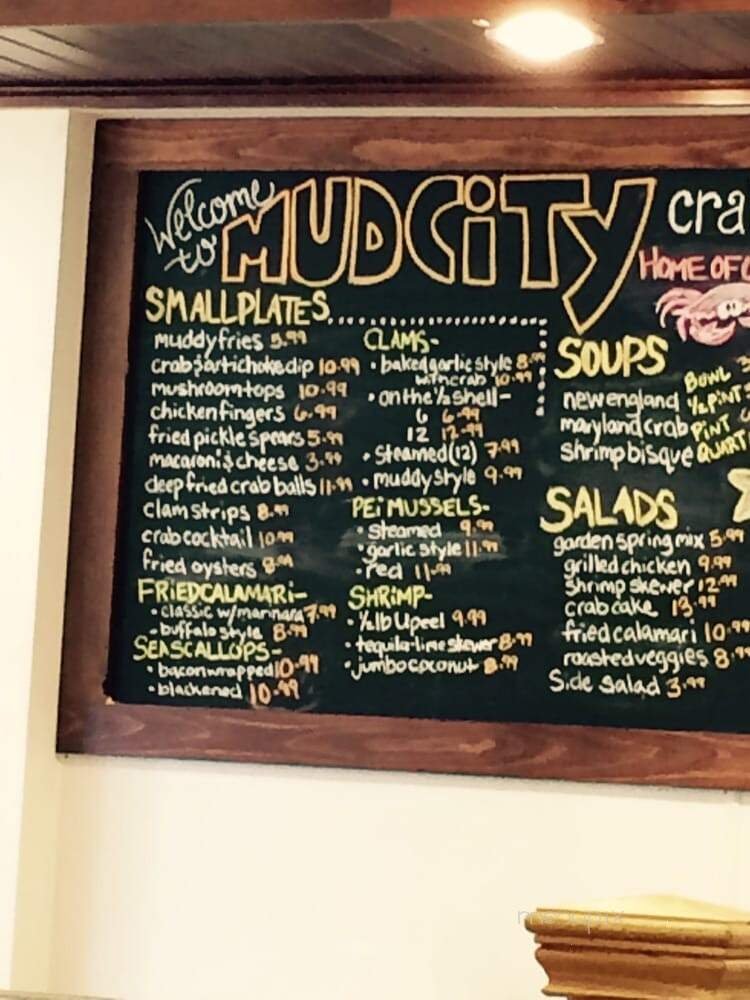 Welcome to MUDCITY cra
HOME OF C
SMALL PLATES
muddy fries 5.99
crab & artichoke dip 10.99
mushroom tops 10.99
chicken fingers 6.99
fried pickle spears 5.99
macaroni & cheese 3.99
deep fried crab balls 11.99
clam strips 8.99
crab cocktail 10.99
fried oysters 8.99
FRIED CALAMARI-
• classic w/marinara 7.99
• buffalo style 8.99
SEA SCALLOPS-
• bacon wrapped 10.99
• blackened 10.99
CLAMS-
• baked garlic style 8.99
w/the crab 10.99
• on the 1/2 shell-
6 6.99
12 12.99
• Steamed (12) 7.99
• muddy style 9.99
PEI MUSSELS-
• Steamed 9.99
• garlic style 11.99
• red 11.99
SHRIMP-
• 1/2 lb U peel 9.99
• tequila-lime skewer 8.99
• jumbo coconut 8.99
SOUPS
new england
maryland crab
shrimp bisque
BOWL
1/2 PINT
PINT
QUART
SALADS
garden spring mix 5.99
grilled chicken 9.99
shrimp skewer 12.99
crab cake 13.99
fried calamari 10.99
roasted veggies 8.99
Side Salad 3.99